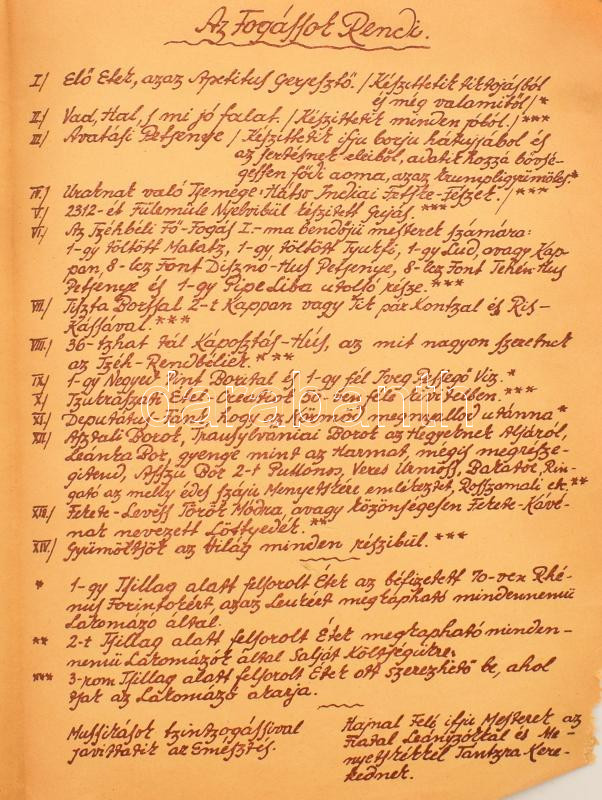 Az Fogássok Rendi.
I/ Elő Etek, azaz Apetitus Gerjesztő. /Készittetik tiktojásból
és még valamiből/ *
II/ Vad, Hal, s mi jó falat. /Készittetik minden jóból./ ***
III/ Avatási Petsenye /Készittetik ifju borju hátujából és
az sertésnek eleiből, adatik hozzá bővsé-
gessen födi aoma, azaz krumpligyümöles. *
IV/ Uraknak való Tsemege: Hátso Indiai Fetske-Fészek./ ***
V/ 2312-ét Fülemüle Nyelvibül készitett Gujás. ***
VI/ Az Tzéhbéli Fő-Fogás I.-ma bendőjü mesterek számára:
1-gy töltött Malatz, 1-gy töltött Tyukfi, 1-gy Lud, avagy Kap-
pan, 8-lcz Font Disznó-Hus Petsenye, 8-lcz Font Tehén-Hus
Petsenye és 1-gy Pipe Liba utolsó része. ***
VII/ Tiszta Borssal 2-t Kappan vagy Tik pár Kontzal és Ris-
Kássával. ***
VIII/ 36-tzhat tál Káposztás-Hús, az mit nagyon szeretnek
az Tzéh-Rendbéliek. ***
IX/ 1-gy Negyed Pint Borital és 1-gy fél Iveg Pesegő Viz. *
X/ Tzukrászati Etel-Creatiók 50-ven féle kivitelben. ***
XI/ Deputátus-Fánk, hogy az Körmöd megnyallod utánna *
XII/ Asztali Borok, Transylvániai Borok az Hegyeknek Aljáról,
Leánka Bor, gyenge mint az Harmat, mégis megrésze-
gitend, Asszu Bor 2-t Puttonos, Veres Ürmöss, Bakator, Rin-
gató az melly édes szájú Menyetskére emlékeztet, Rosszamáli etc. **
XIII/ Fekete-Levess Török Módra, avagy közönségesen Fekete-Kávé-
nak nevezett Löttyedék. **
XIV/ Gyümöltsök az Világ minden részibül. ***
* 1-gy Tsillag alatt felsorolt Étek az béfizetett 70-ven Rhé-
nus Forintokért, azaz Leukért megkapható mindennemü
Lakomázó által.
** 2-t Tsillag alatt felsorolt Étek megkapható minden-
nemü Lakomázók által Saját Költségükre.
*** 3-rom Tsillag alatt felsorolt Etek ott szerezhető be, ahol
tsak az Lakomázó akarja.
Mussikások tzintzogássival
javittatik az Emésztés.
Hajnal Felé ifju Mesterek az
Fiatal Leányzókkal és Me-
nyetskékkel Tántzra Kere-
kednek.
darabanth